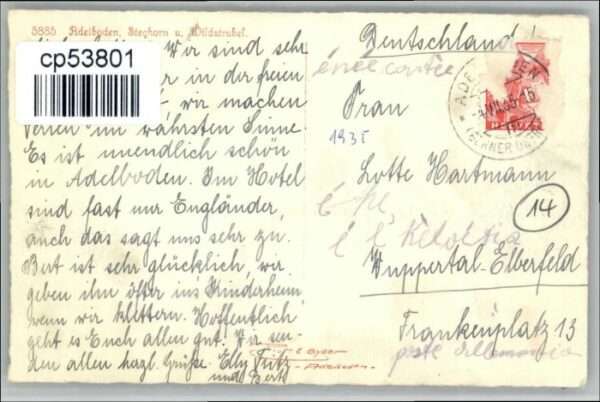 5385 Adelboden, Steghorn u. Wildstrubel.
cp53801
Wir sind sehr
in der freien
wir machen
Ferien im wahrsten Sinne.
Es ist unendlich schön
in Adelboden. Im Hotel
sind fast nur Engländer,
auch das sagt uns sehr zu.
Bert ist sehr glücklich, wir
geben ihn öfter ins Kinderheim
wenn wir klettern. Hoffentlich
geht es Euch allen gut. Wir sen-
den allen herzl. Grüße. Elly Fritz
und Bert
Deutschland
Frau
1935
Lotte Hartmann
14
Wuppertal-Elberfeld
Frankenplatz 13